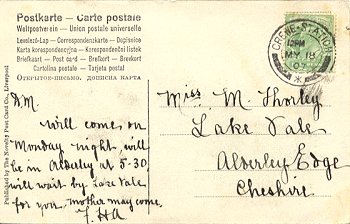 Postkarte – Carte postale
Weltpostverein – Union postale universelle
Levelező-Lap – Correspondenzkarte – Dopisnice
Karta korespondencyjna – Korrespondenční listek
Briefkaart – Post card – Brefkort – Brevkort
Cartolina postale – Tarjeta postal
Открытое письмо. Дописна карта
Published by The Novelty Post Card Co., Liverpool
D.M.
Will come on
Monday night, will
be in Alderley at 5-30
will wait by Lake Vale
for you, mother may come.
F.H.A
CREWE-STATION
MY 18
Miss M. Thorley
Lake Vale
Alderley Edge
Cheshire